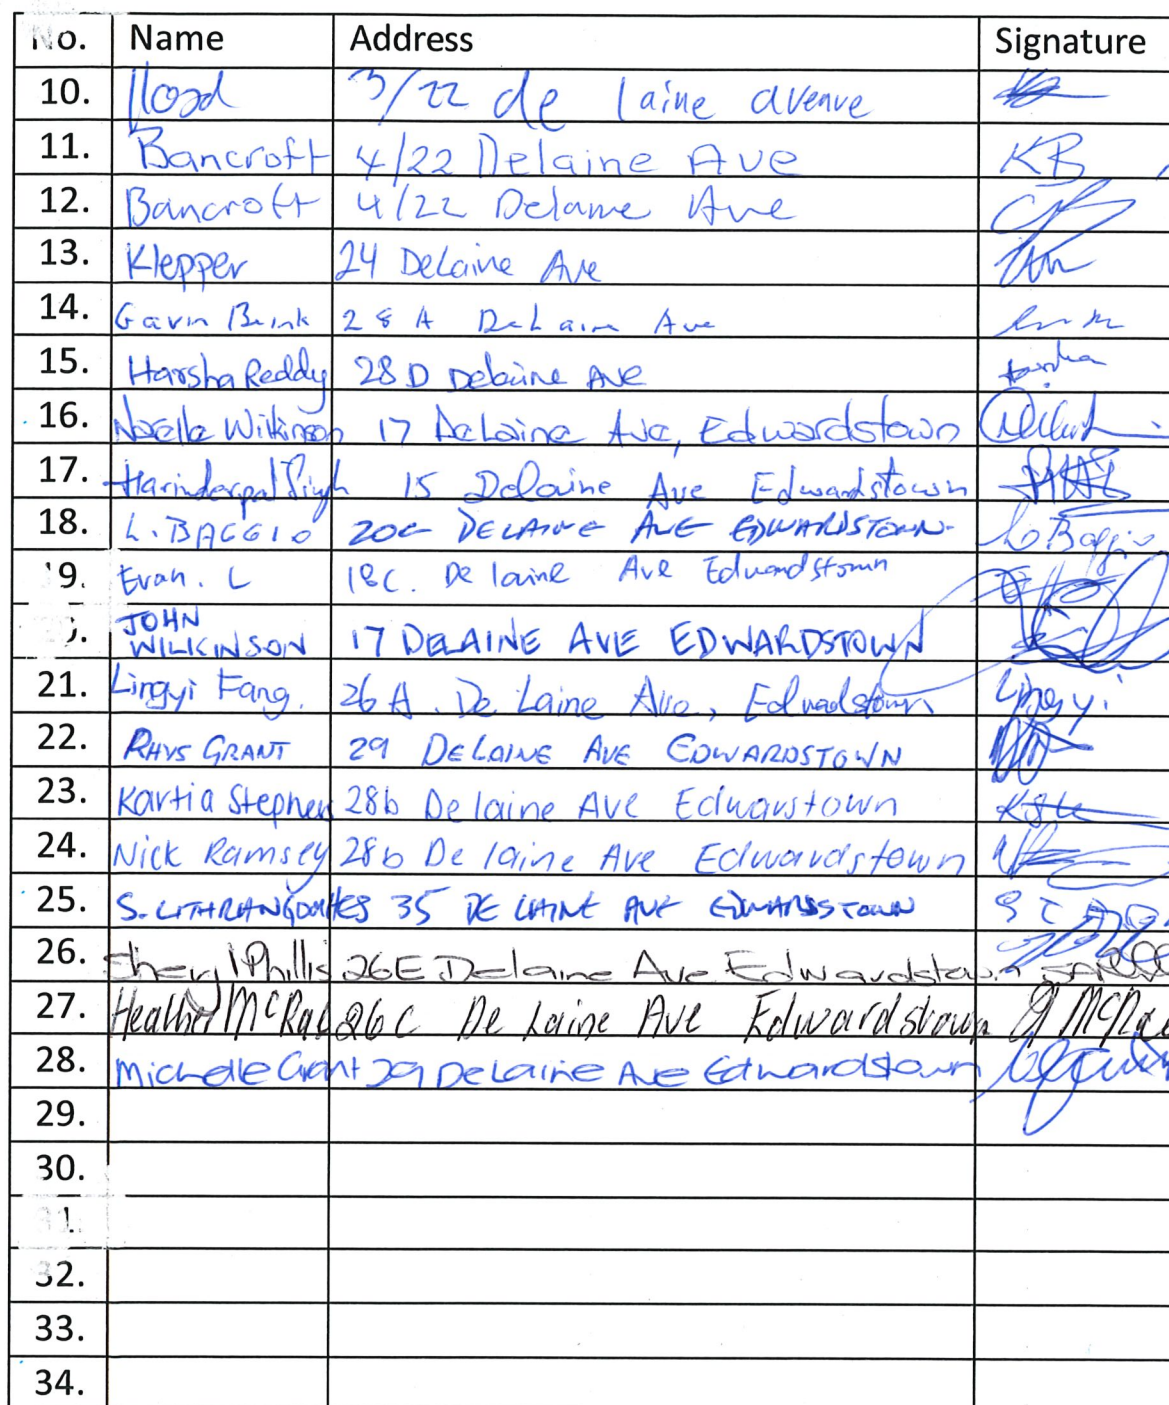 No. Name Address Signature
10. 3/22 de laine avenue
11. Bancroft 4/22 Delaine Ave KB
12. Bancroft 4/22 Delaine Ave
13. Klepper 24 DeLaine Ave
14. Gavin Brink 28 A DeLaine Ave
15. Harsha Reddy 28 D Delaine Ave
16. Noelle Wilkinson 17 DeLaine Ave, Edwardstown
17. Harinderpal Singh 15 Delaine Ave Edwardstown
18. L. BAGGIO DELAINE AVE EDWARDSTOWN L Baggio
19. Evan. L 18C. De laine Ave Edwardstown
JOHN
WILKINSON 17 DELAINE AVE EDWARDSTOWN
21. Lingyi Fang. 26 A. De Laine Ave, Edwardstown Lingyi
22. RHYS GRANT 29 DELAINE AVE EDWARDSTOWN
23. Kartia Stephen 28b De laine Ave Edwarstown
24. Nick Ramsey 28b De laine Ave Edwardstown
25. 35 DE LAINE AVE EDWARDSTOWN
26. Cheryl Phillis 26E Delaine Ave Edwardstown
27. Heather McRae 26C De Laine Ave Edwardstown
28. Michelle Grant 29 DeLaine Ave Edwardstown
29.
30.
31.
32.
33.
34.